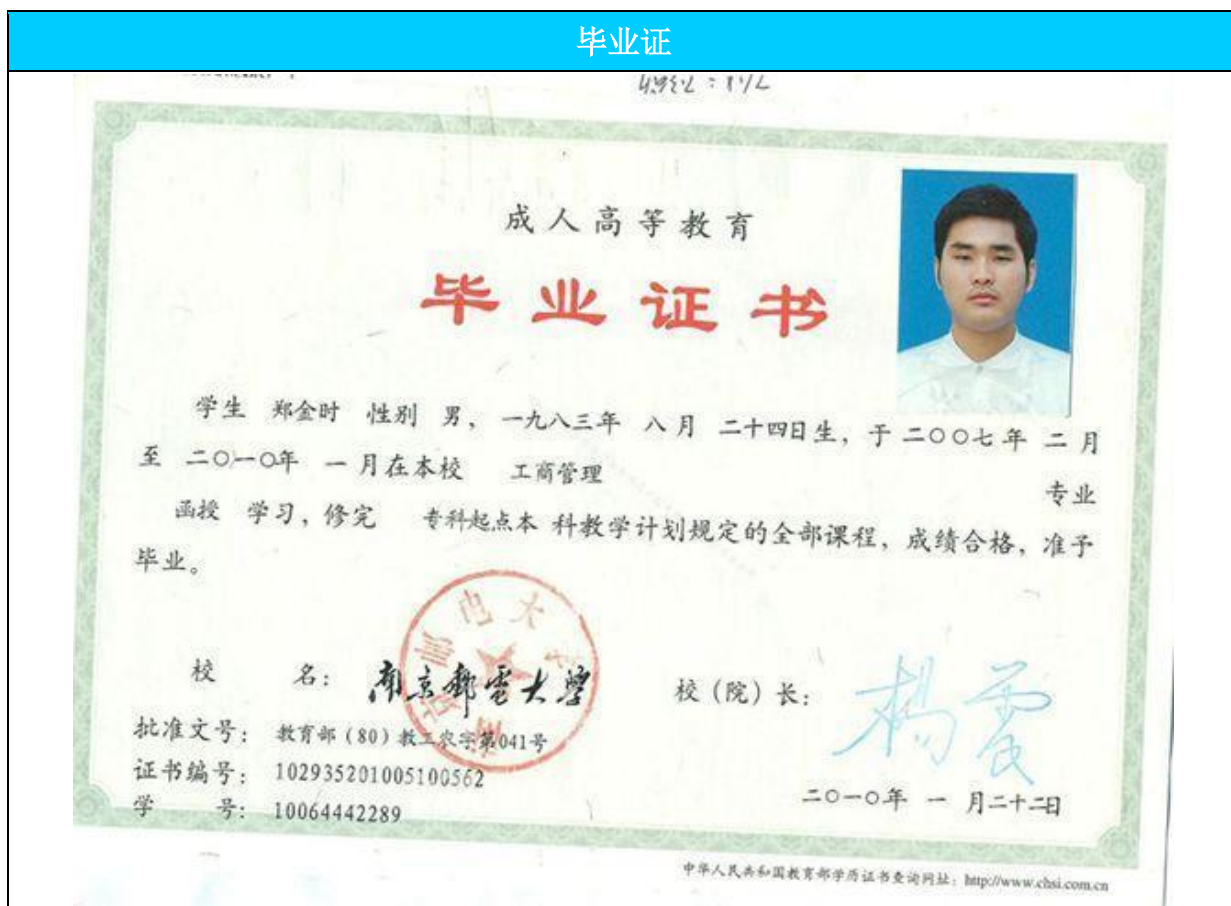 毕业证
成人高等教育
毕业证书
学生 郑金时 性别 男，一九八三年 八月 二十四日生，于 二〇〇七年 二月
至 二〇一〇年 一月在本校 工商管理 专业
函授 学习，修完 专科起点本 科教学计划规定的全部课程，成绩合格，准予
毕业。
校 名：南京邮电大学 校（院）长：杨震
批准文号：教育部（80）教工农字第041号
证书编号：102935201005100562
学 号：10064442289
二〇一〇年 一 月二十二日
中华人民共和国教育部学历证书查询网址：http://www.chsi.com.cn